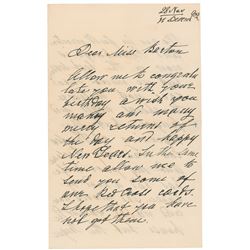 28 Nov
Dear Miss Barton
Allow me to congratu
late you with your
birthday a wish you
many and many
merry returns of
the day and happy
New Years. In the same
time allow me to
send you some of
our Red Cross cards.
I hope that you have
not got them.